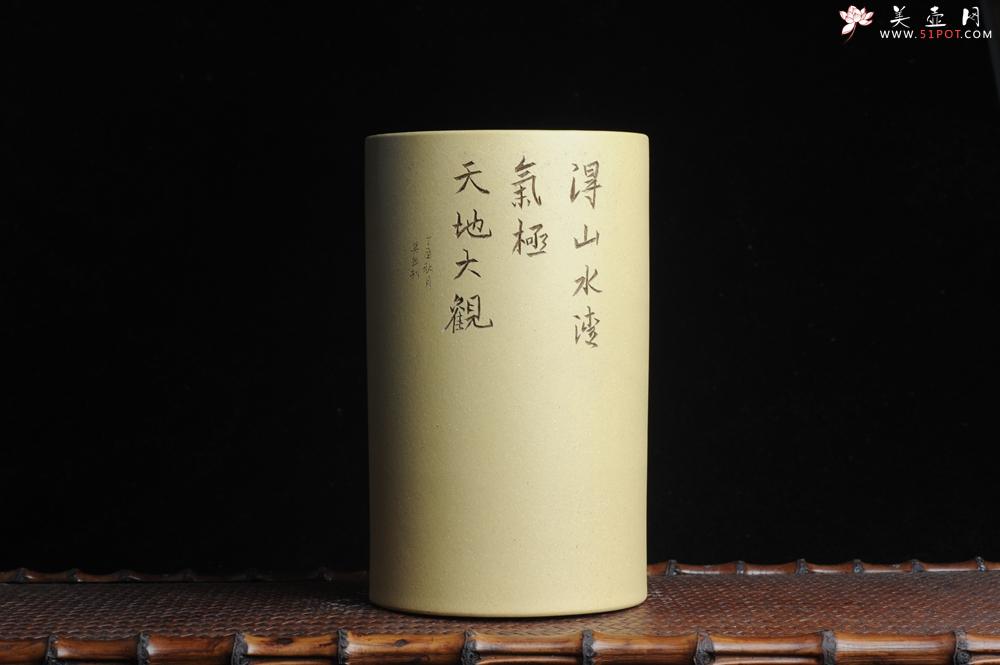 得山水清
氣極
天地大觀
丁丑秋月
美壶网
WWW.51POT.COM